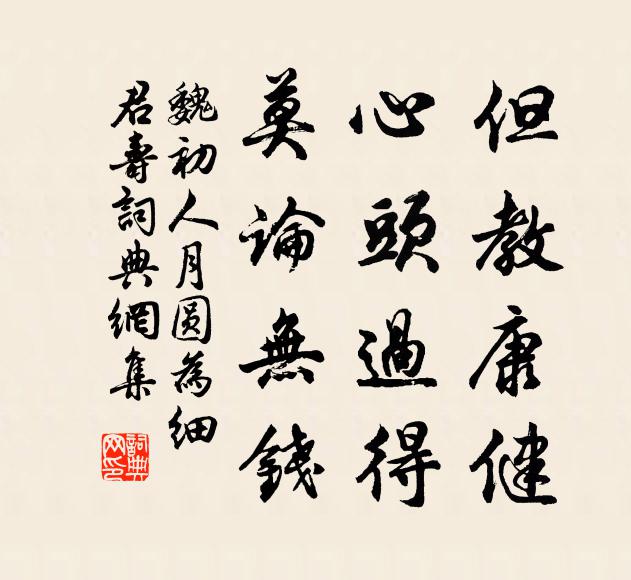 但教康健
心頭過得
莫論無錢
魏初人月圓為細
君壽詞典網集
詞典網印